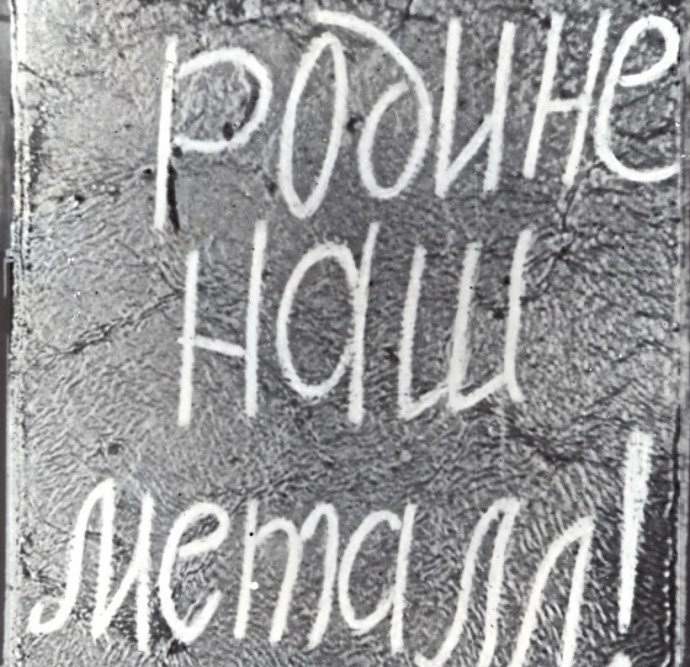 родине
наш
металл!